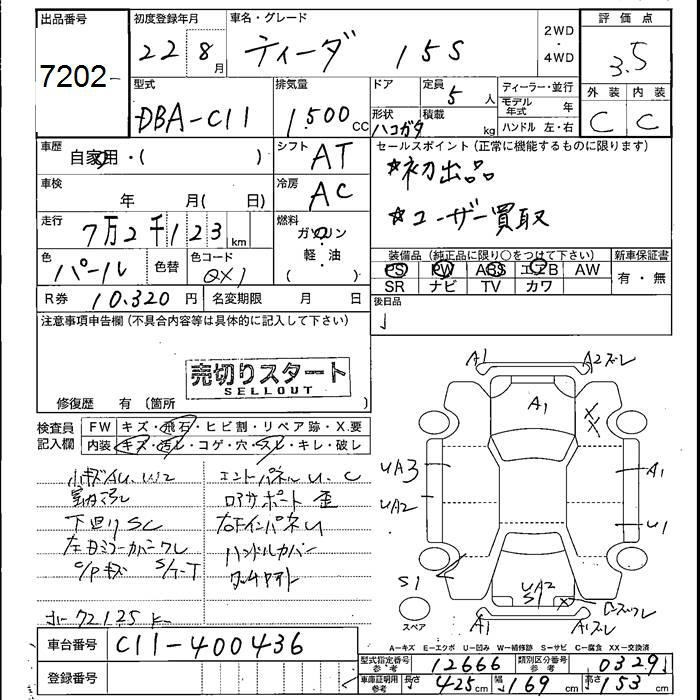 出品番号 初度登録年月 車名・グレード 2WD・4WD 評価点
7202 22 8月 ティーダ 15S 3.5
型式 排気量 ドア 定員 ディーラー・並行 外装 内装
DBA-C11 1,500CC 5人 モデル年式 年 C C
形状 積載
ハコガタ kg ハンドル 左・右
車歴 自家用・( ) シフト AT セールスポイント(正常に機能するものに限ります)
☆初出品
車検 年 月( 日) 冷房 AC
☆ユーザー買取
走行 7万2千123km 燃料 ガソリン・軽油( )
色 パール 色替 色コード QX1
装備品(純正品に限り○をつけて下さい) 新車保証書
PS PW ABS エアB AW 有・無
SR ナビ TV カワ
R券 10,320円 名変期限 月 日 後日品
注意事項申告欄(不具合内容等は具体的に記入して下さい)
売切りスタート
SELLOUT
修復歴 有(箇所
検査員記入欄 FW キズ・飛石・ヒビ割・リペア跡・X.要
内装 キズ・汚レ・コゲ・穴・スレ・キレ・破レ
小キズAU.W2 エンドパネルU.C
ロアサポート歪
下回りSC 右FインパネU
左ドミラーカバーワレ ハンドルカバー
C/Pキズ S/T-T
A1 A2ズレ
A1 XX
UA3 A1
UA2 U1
S1 UA2 S1 X
A1 A1ズレ
スペア
車台番号 C11-400436
A-キズ E-エクボ U-凹み W-補修跡 S-サビ C-腐食 XX-交換済
登録番号
型式指定番号参考 12666 類別区分番号参考 0329
車庫証明用参考 長さ 425cm 幅 169cm 高さ 153cm